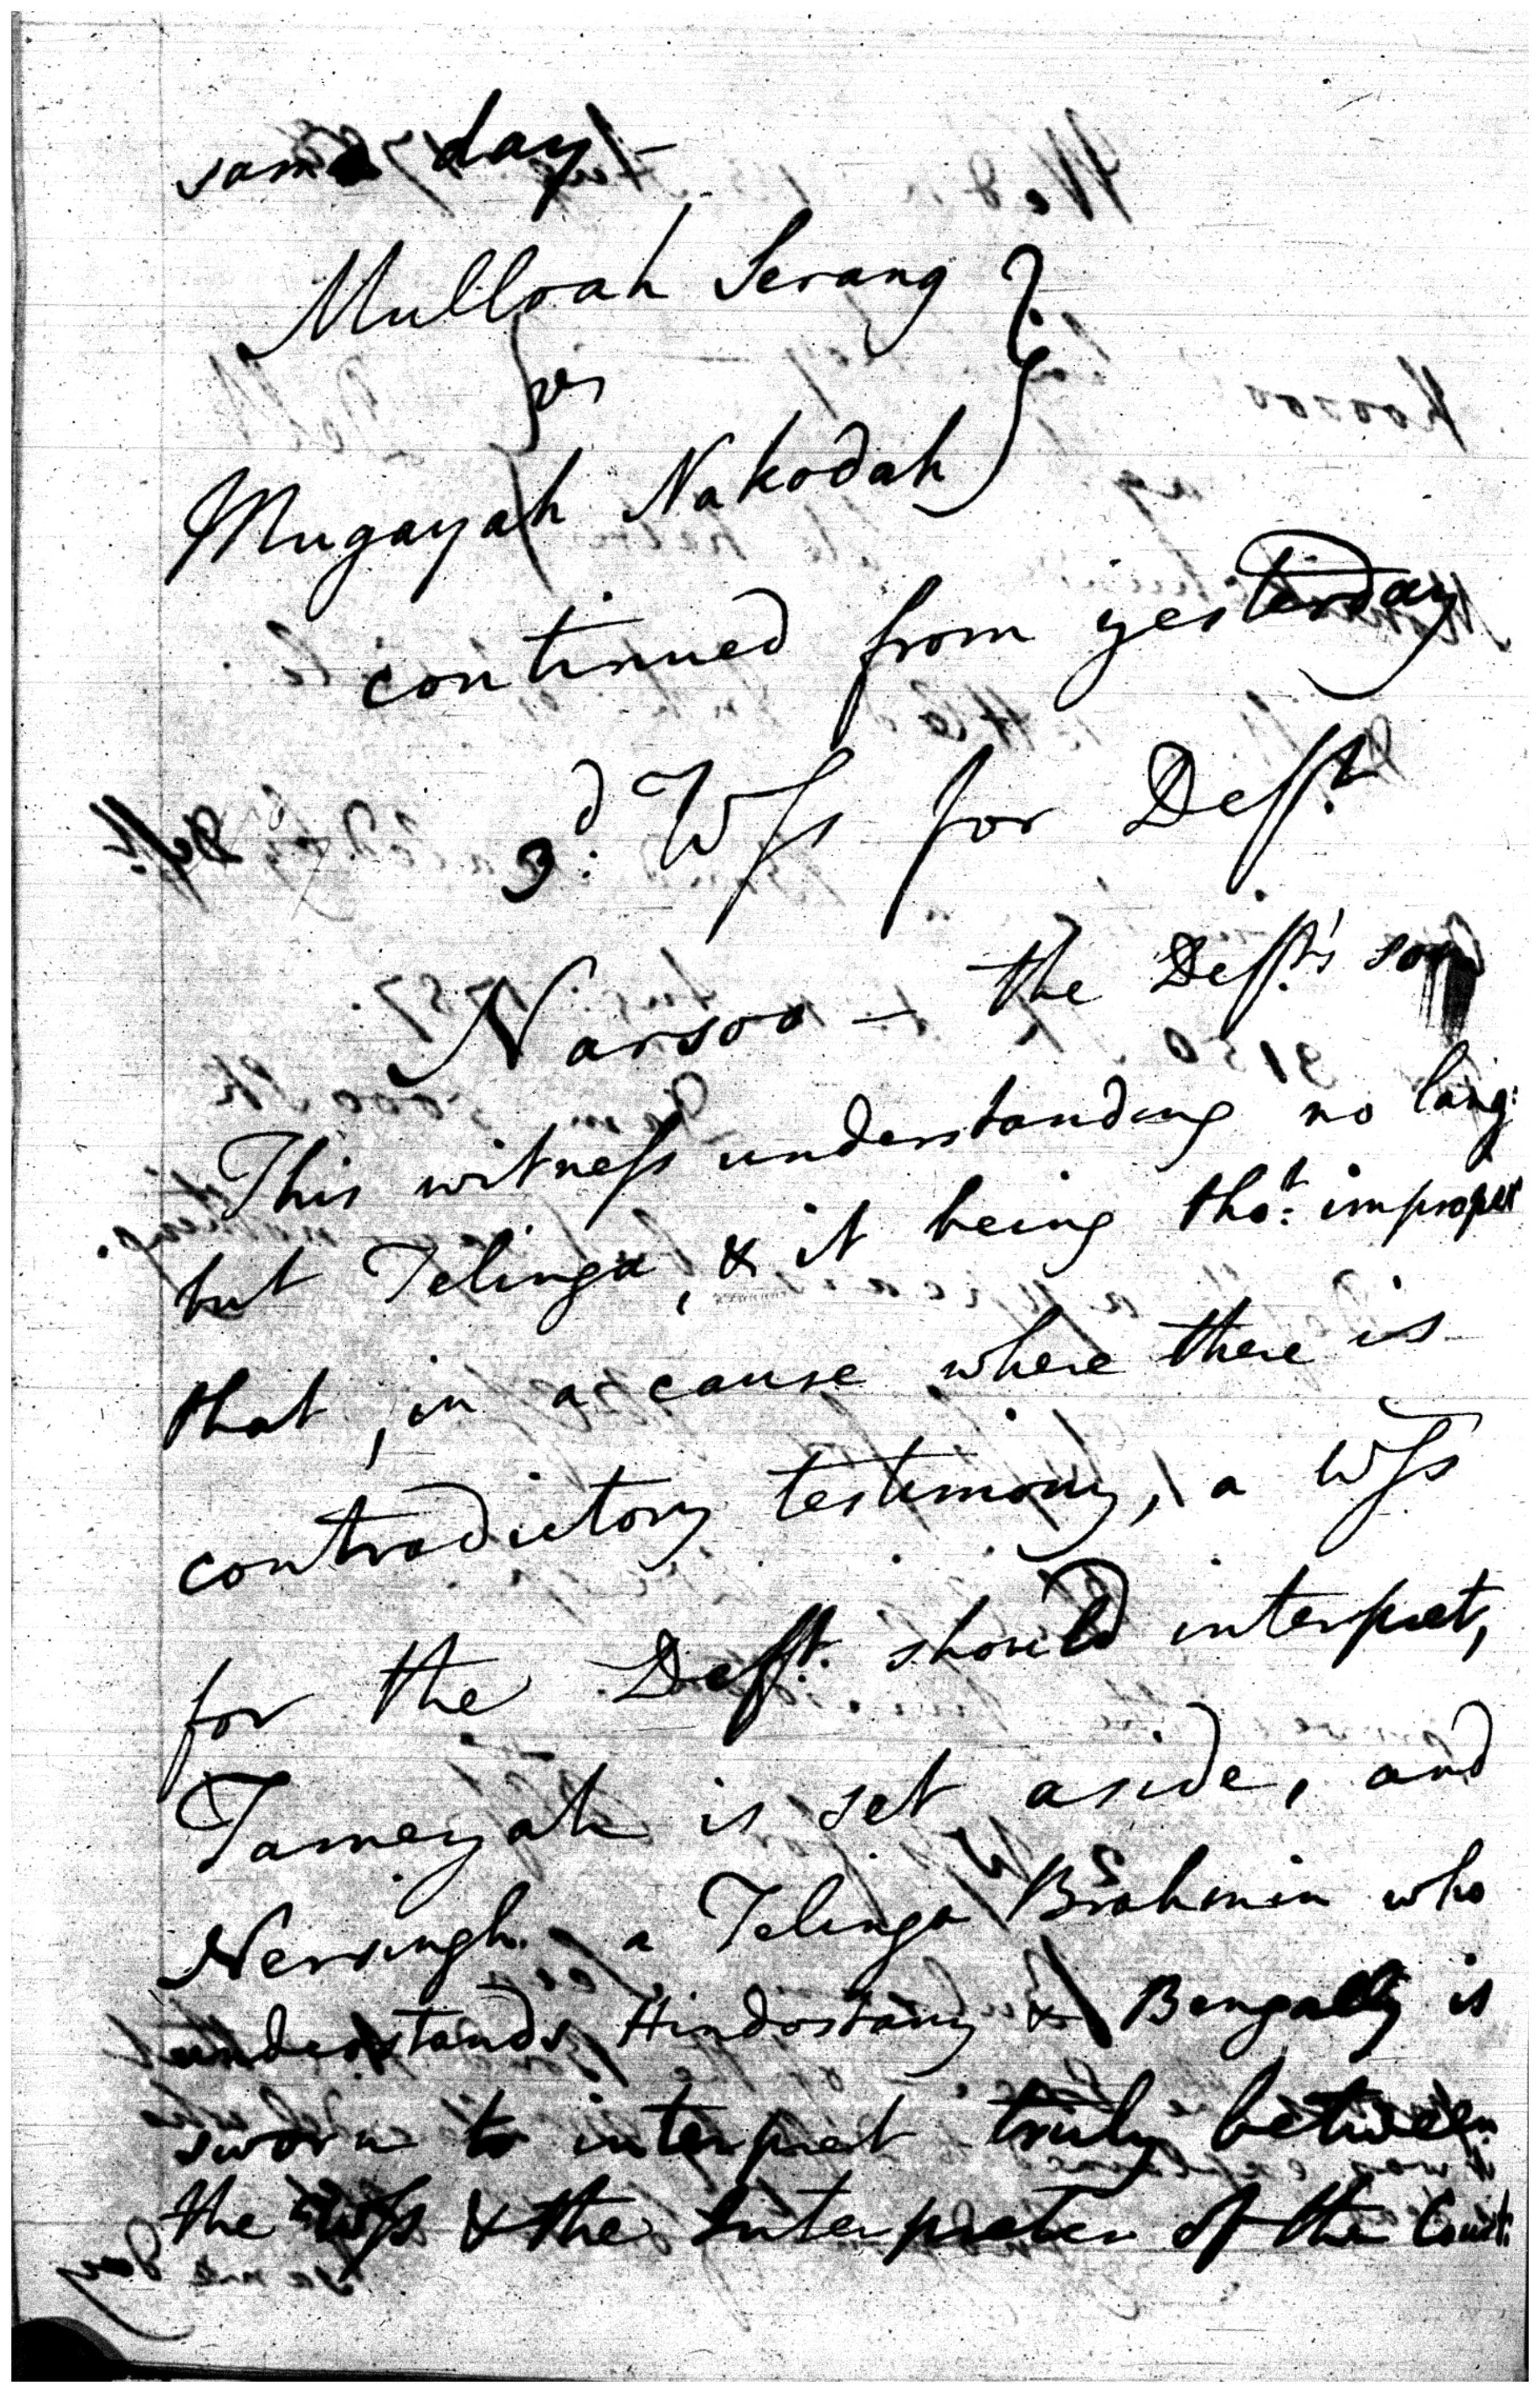 same day -
Mulloah Serang
vs
Mugayah Nakodah
continued from yesterday
3d. Wss for Defft
Narsoo - the Defft's son
This witness understanding no lang:
but Telinga, & it being tho:t improper
that, in a cause where there is
contradictory testimony, a Wss
for the Defft. should interpret,
Tameyah is set aside, and
Nersingh a Telinga Brahmin who
understands Hindostany & Bengally is
sworn to interpret truly between
the Wss & the Interpreter of the Court.